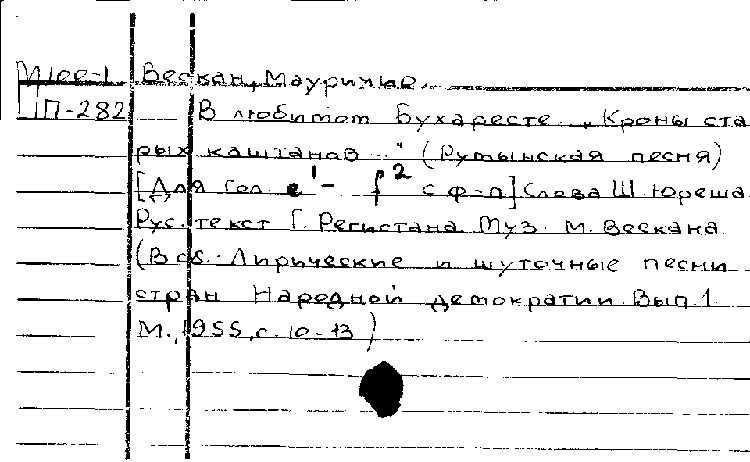 Вескан, Маурикье.
П-282 В любимом Бухаресте. „Кроны ста
рых каштанов..." (Румынская песня)
[Для гол. e¹ - f² с ф-п] Слова Ш. Юреша
Рус. текст Г. Регистана Муз. М. Вескана
(В сб.: Лирические и шуточные песни
стран Народной демократии. Вып. 1.
М., 1955, с. 10-13)